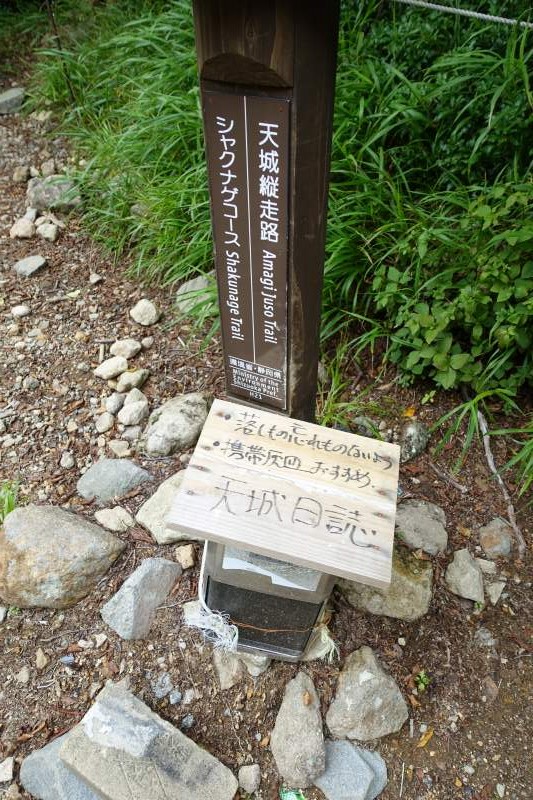 天城縦走路 Amagi Juso Trail
シャクナゲコース Shakunage Trail
環境省・静岡県
Ministry of the
Environment
Shizuoka Pref.
H23
・落しもの忘れもののないよう
・携帯灰皿 おすすめ。
天城日誌